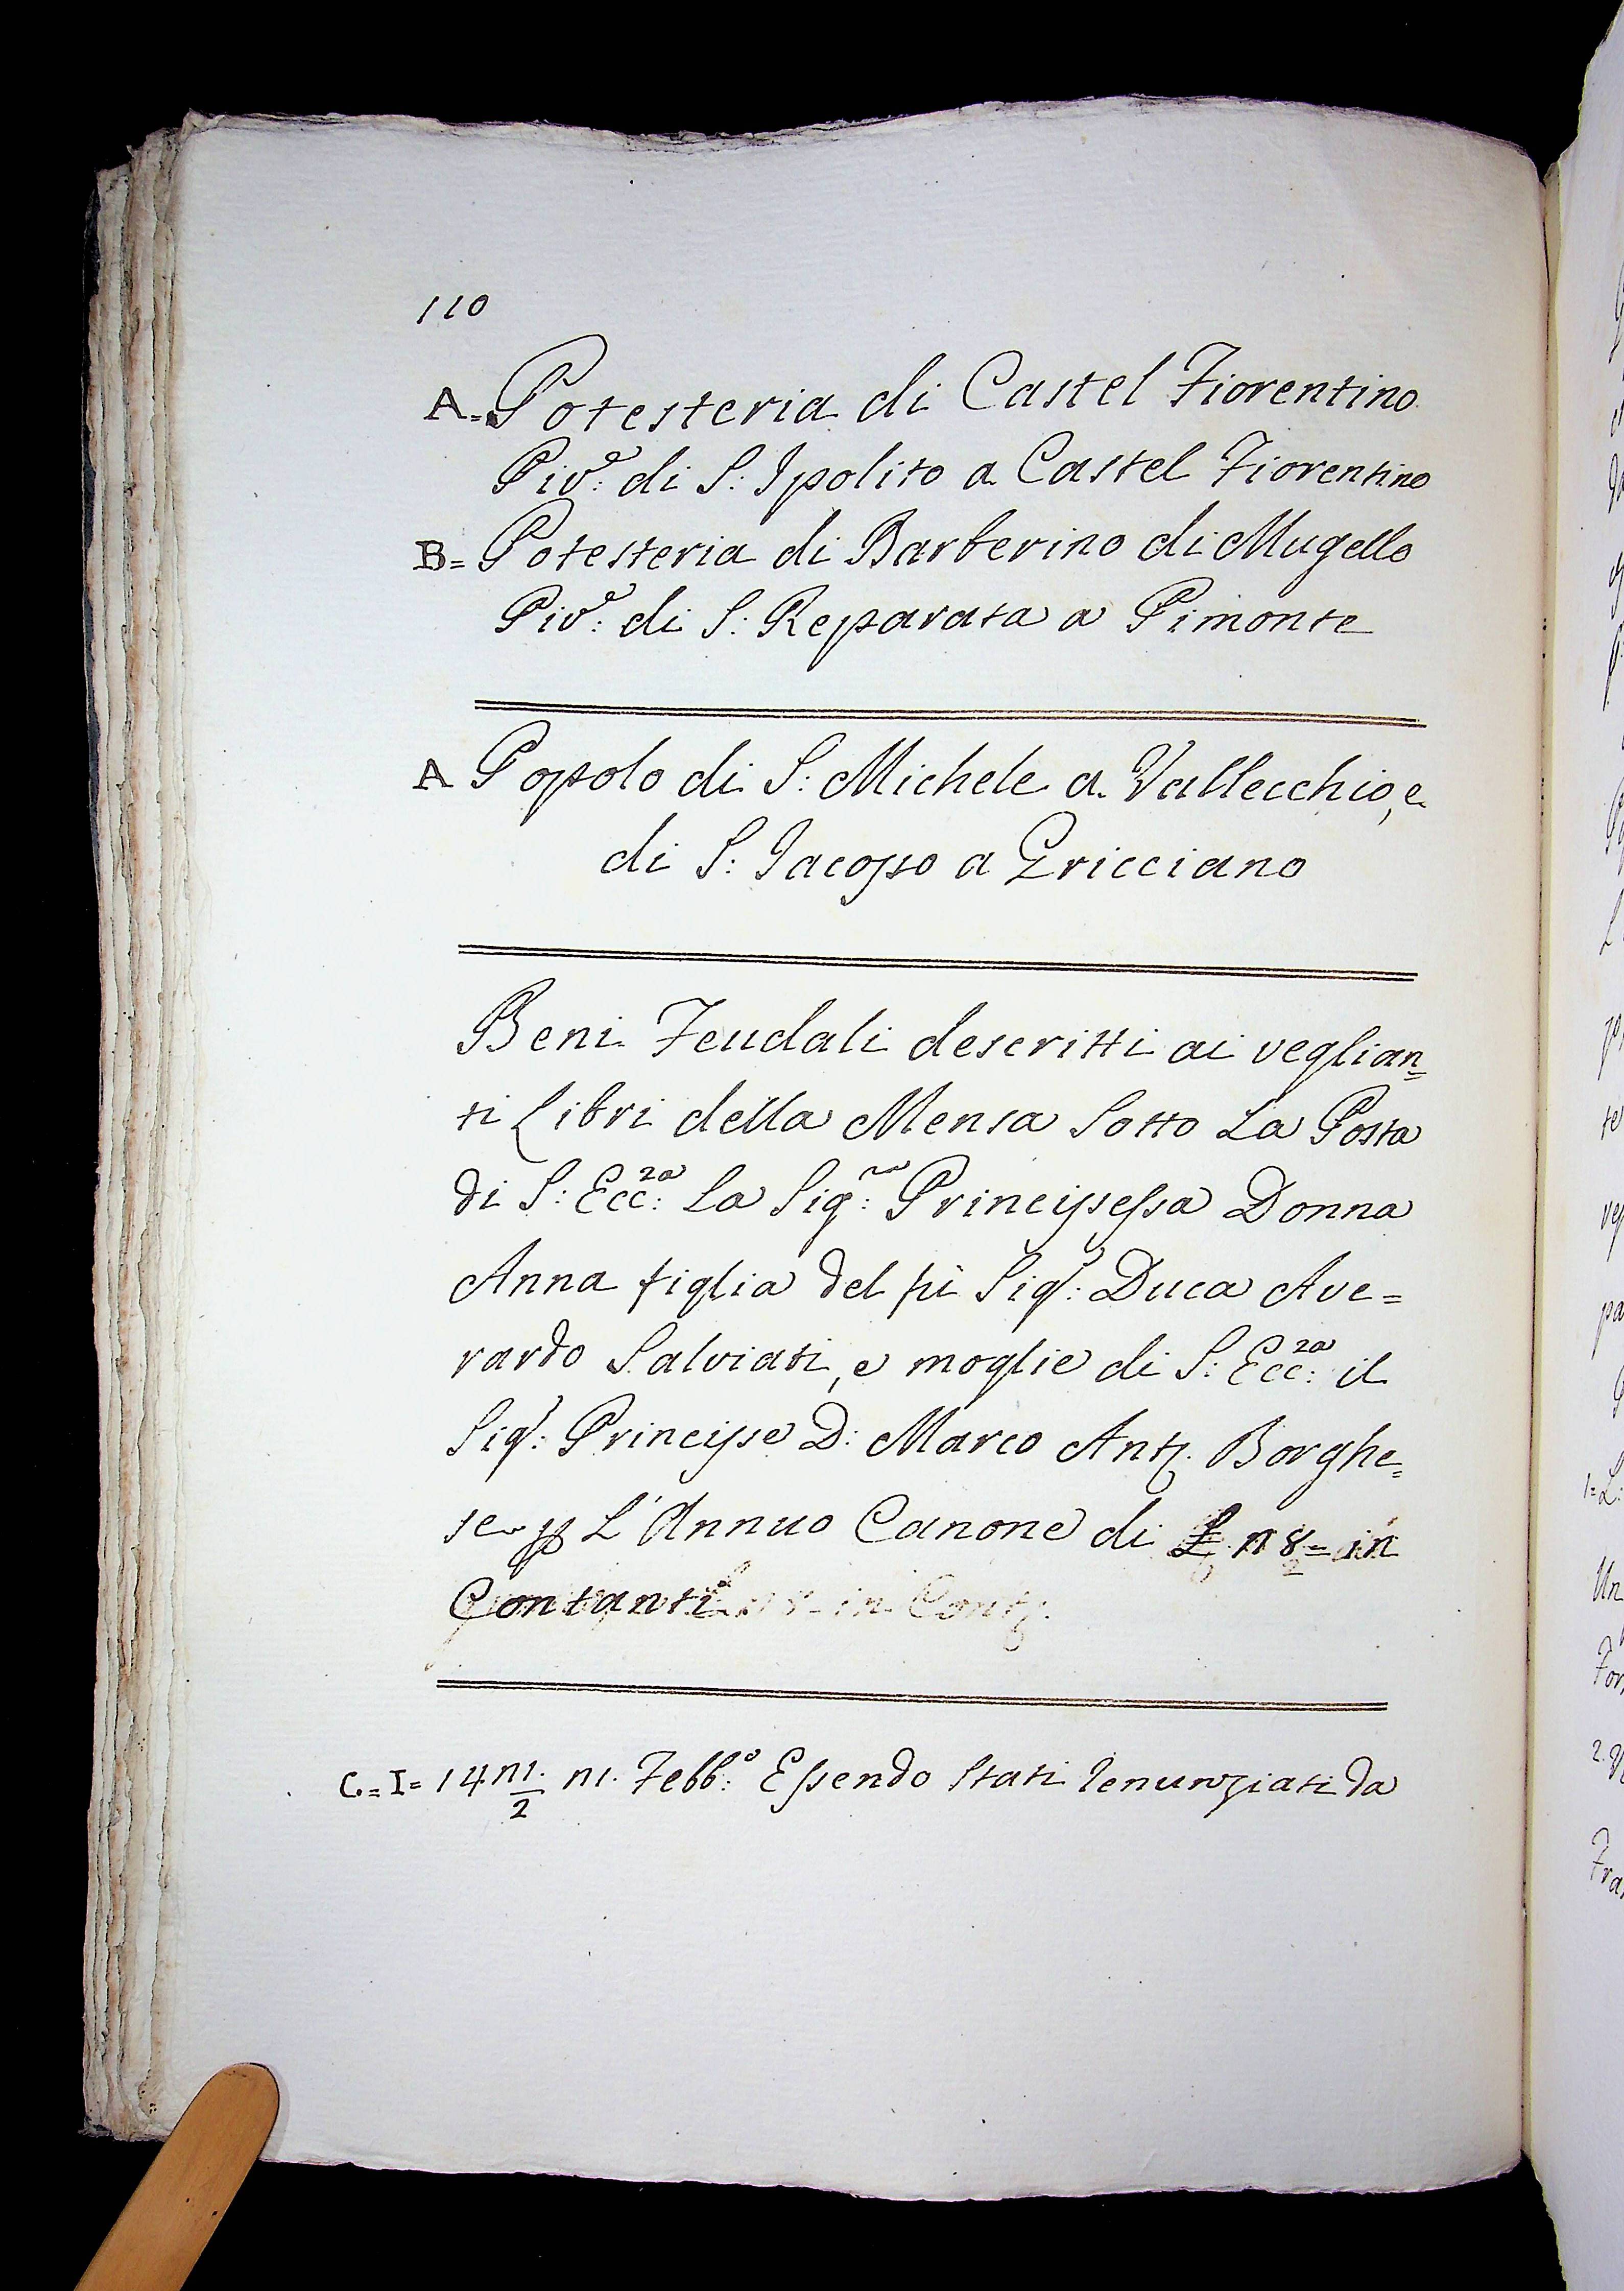 110
A= Potesteria di Castel Fiorentino
Piv:e di S: Ipolito a Castel Fiorentino
B= Potesteria di Barberino di Mugello
Piv:e di S: Reparata a Pimonte
A Popolo di S: Michele a Vallecchio, e
di S: Jacopo a Gricciano
Beni Feudali descritti ai veglian=
ti Libri della Mensa Sotto La Posta
di S: Ecc:za La Sig:ra Principessa Donna
Anna figlia del fù Sig:r Duca Ave=
rardo Salviati, e moglie di S: Ecc:za il
Sig:r Principe D: Marco Ant. Borghe=
se p L'Annuo Canone di £ 18= in
Contanti
C.=I= 14 11./2 11. Febb:o Essendo Stati denunziati da